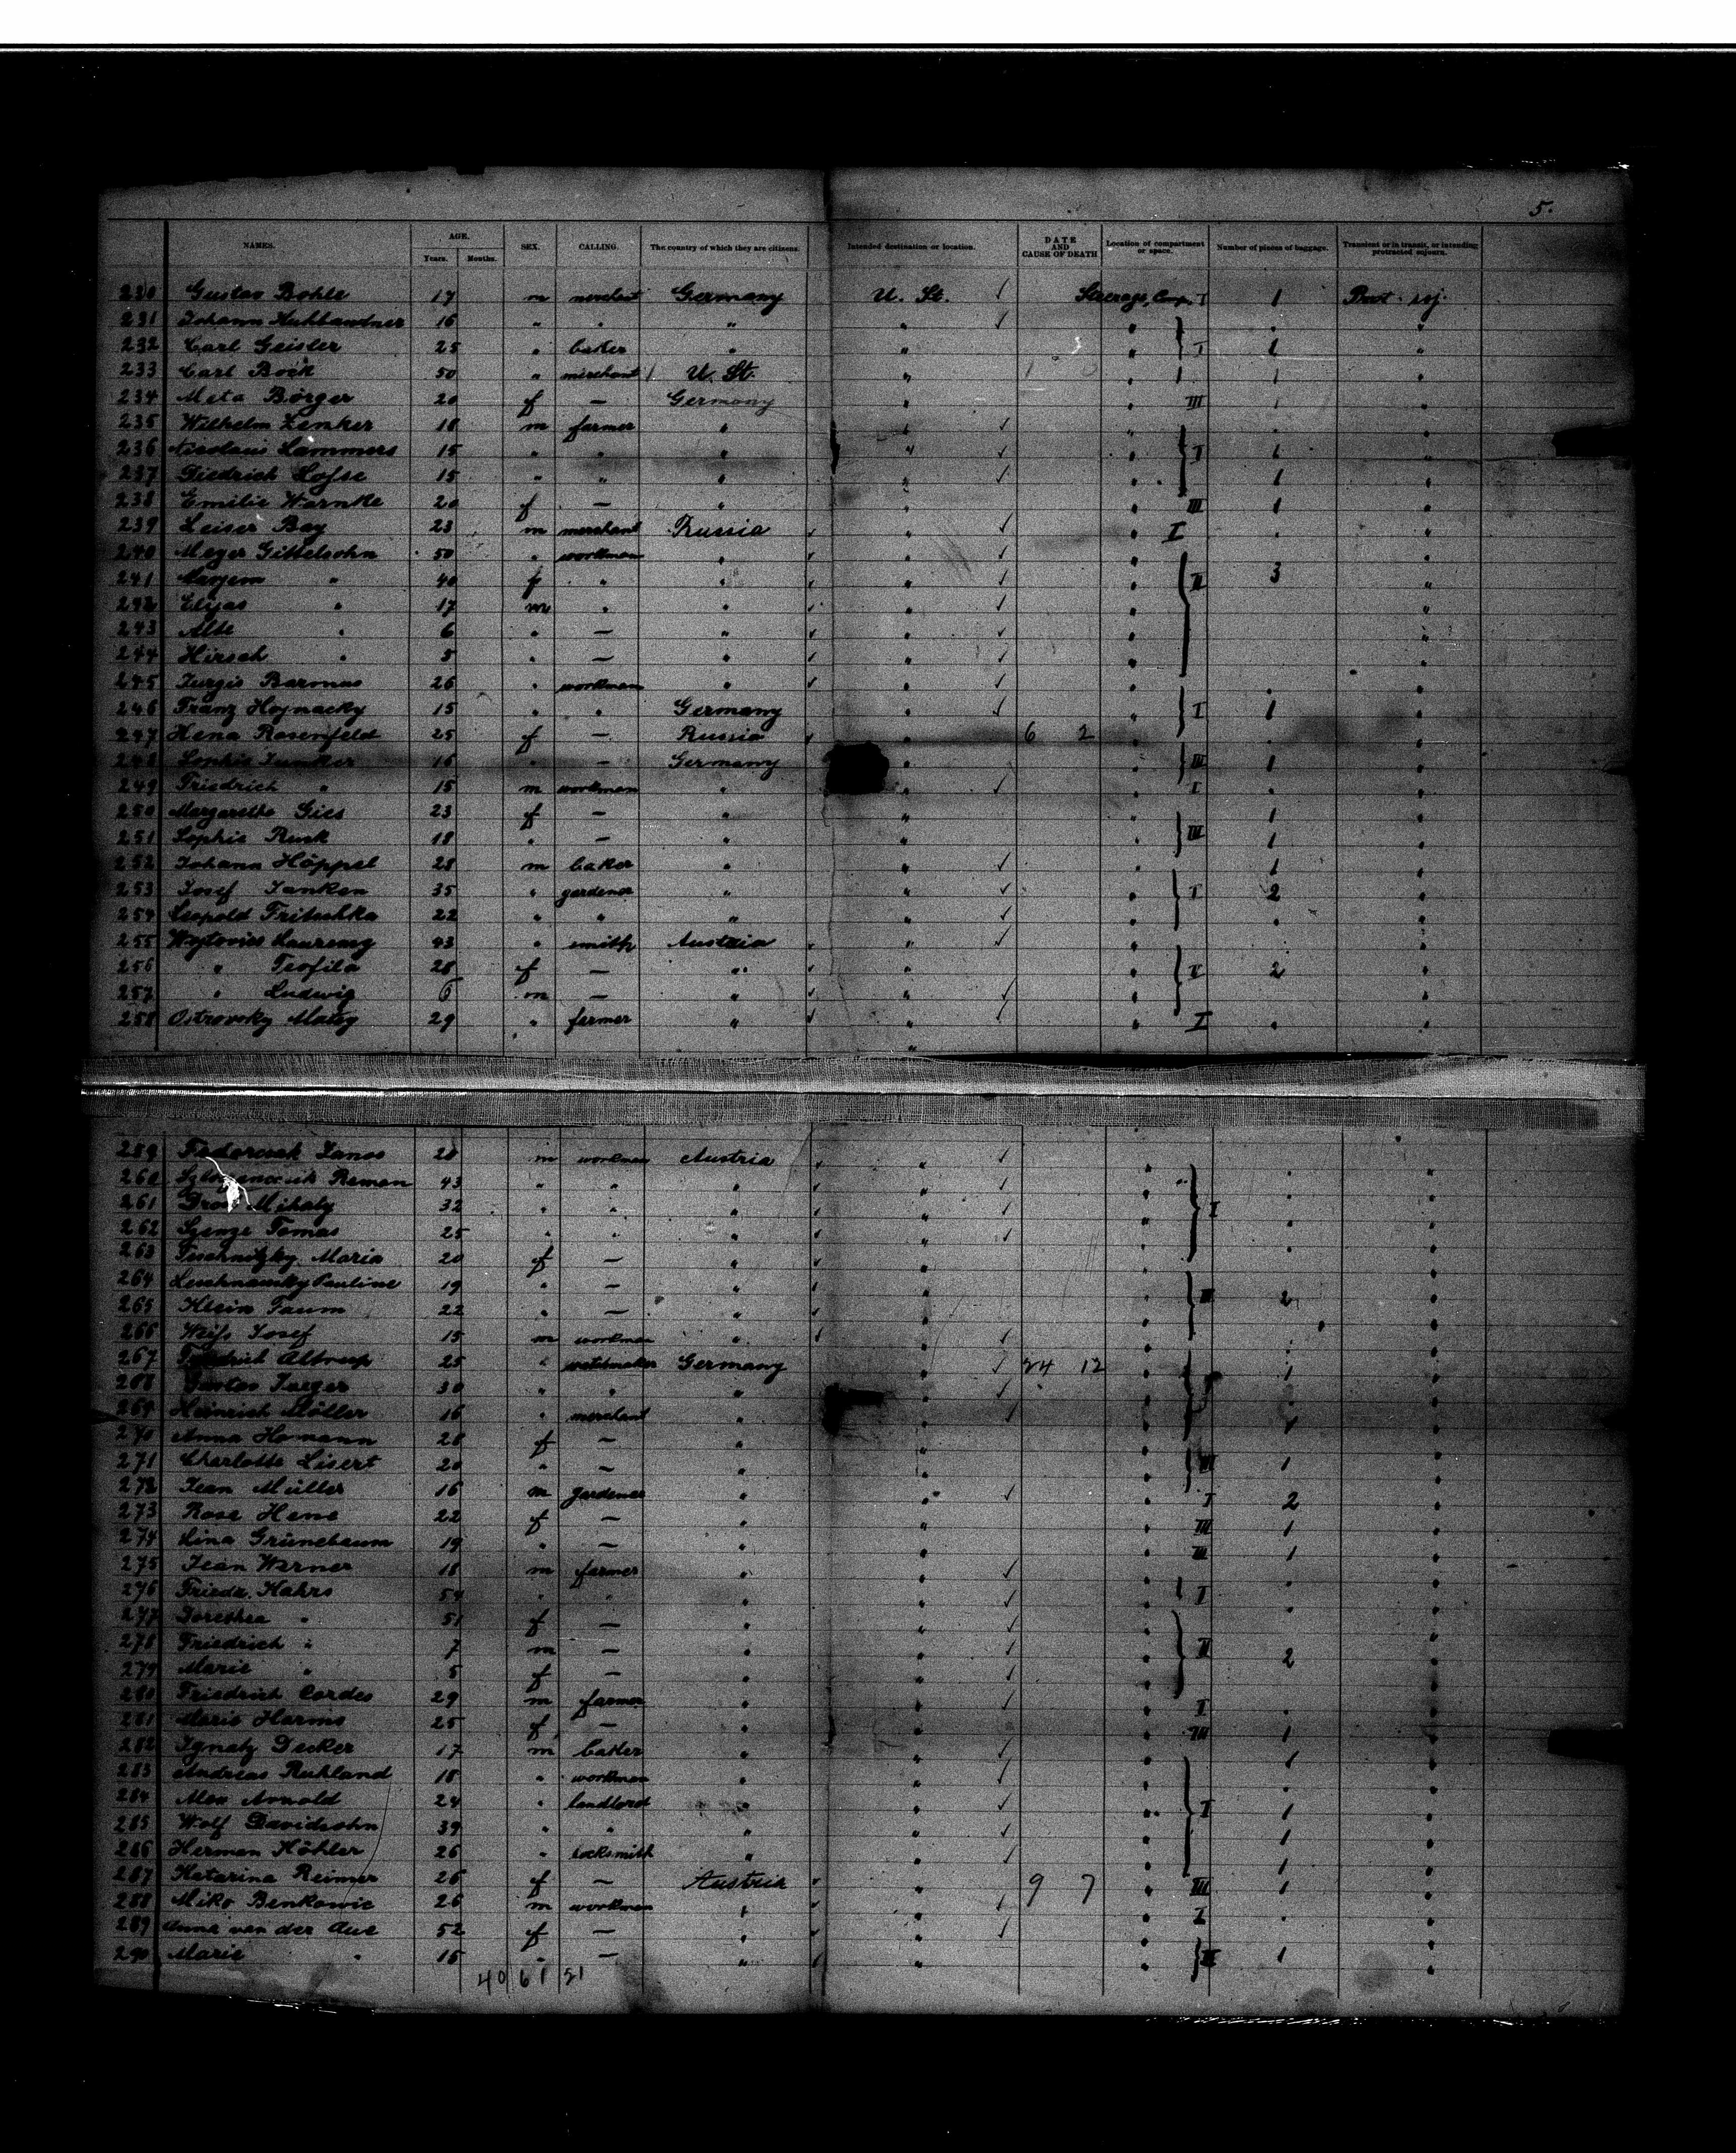 5.
NAMES. AGE. SEX. CALLING. The country of which they are citizens. Intended destination or location. DATE AND CAUSE OF DEATH Location of compartment or space. Number of pieces of baggage. Transient or in transit, or intending protracted sojourn.
Years. Months.
230 Gustav Bohle 17 m merchant Germany U. St. ✓ Steerage, Comp. I 1
231 Johann 16 " " " " ✓ " "
232 Carl Geisler 25 " baker " " " I 1 "
233 Carl Bock 50 " merchant U. St. " " 1 "
234 Meta Börger 20 f — Germany " III "
235 Wilhelm Zenker 18 m farmer " " ✓ "
236 Nicolaus Lammers 15 " " " " ✓ " I 1 "
237 15 " " " " ✓ " 1 "
238 Emilie Warnke 20 f — " " " III 1 "
239 Leiser Bay 23 m merchant Russia " ✓ " I " "
240 Meyer Gittelsohn 50 " workman " " ✓ " "
241 " 40 f " " " ✓ " II 3 "
242 Elijas " 17 m " " " ✓ " "
243 Alte " 6 " — " " ✓ " "
244 Hirsch " 5 " — " " ✓ " "
245 Jurgis 26 " workman " " ✓ " "
246 Franz Hojnacky 15 " " Germany " ✓ " I 1 "
247 Hena Rosenfeld 25 f — Russia " 6 2 " " "
248 Sophie Junker 16 " — Germany " " III 1 "
249 Friedrich " 15 m workman " " ✓ " I " "
250 Margarethe Gies 23 f — " " " 1 "
251 Sophie 18 " — " " " III 1 "
252 Johann Höppel 28 m baker " " ✓ " 1 "
253 Josef Janken 35 " gardener " " ✓ " I 2 "
254 Leopold Fritschka 22 " " " " ✓ " " "
255 43 " smith Austria " ✓ " "
256 " Teofila 28 f — " " " II 2 "
257 " Ludwig 6 m — " " ✓ " "
258 Ostrovsky 29 " farmer " " ✓ " I " "
259 Janos 28 m workman Austria " ✓ " " "
260 Roman 43 " " " " ✓ " " "
261 Mihaly 32 " " " " ✓ " I "
262 Tomas 25 " " " " ✓ " " "
263 Maria 20 f — " " " " "
264 Pauline 19 " — " " " "
265 Klein 22 " — " " " III 2 "
266 Weiss Josef 15 m workman " " ✓ " " "
267 Friedrich 25 " watchmaker Germany " ✓ 24 12 " 1 "
268 Gustav Jaeger 30 " " " " ✓ " I "
269 Heinrich 16 " merchant " " ✓ " 1 "
270 Anna Homann 28 f — " " " "
271 Charlotte Lisert 20 " — " " " III 1 "
272 Jean Müller 16 m gardener " " ✓ " I 2 "
273 Rosa Hene 22 f — " " " III 1 "
274 Lina Grünebaum 19 " — " " " III 1 "
275 Jean Werner 18 m farmer " " ✓ " " "
276 Friedr. Hahrs 54 " " " " ✓ " I " "
277 Dorethea " 51 f — " " ✓ " "
278 Friedrich " 7 m — " " ✓ " II 2 "
279 Marie " 5 f — " " ✓ " "
280 Friedrich Cordes 29 m farmer " " ✓ " I " "
281 Marie Harms 25 f — " " " III 1 "
282 Ignatz Decker 17 m baker " " ✓ " 1 "
283 Andreas Ruhland 18 " workman " " ✓ " " "
284 Max Arnold 24 " landlord " " ✓ " I 1 "
285 Wolf Davidsohn 39 " " " " ✓ " 1 "
286 Herman Köhler 26 " locksmith " " ✓ " 1 "
287 Katarina Reimer 26 f — Austria " 9 7 " III 1 "
288 Miko Benkowic 26 m workman " " ✓ " I " "
289 Anna van der Aue 52 f — " " ✓ " "
290 Marie " — " " " 1 "
40 61 21